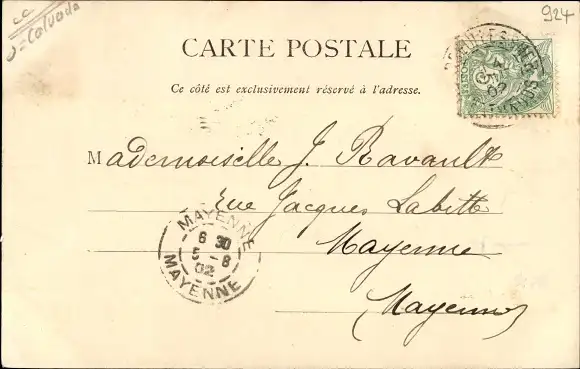 924
CARTE POSTALE
Ce côté est exclusivement réservé à l'adresse.
Mademoiselle J. Ravault
rue Jacques Labitte
Mayenne
(Mayenne)
MAYENNE
6 30
5 - 8
02
MAYENNE